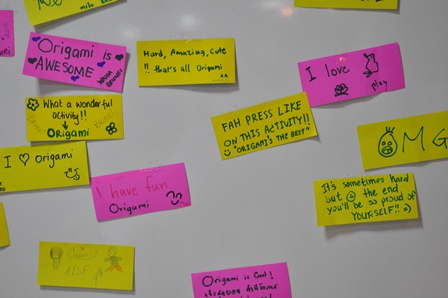 Origami is
AWESOME
Hard, Amazing, Cute
!! that's all Origami
I love
play
What a wonderful
activity!!
Origami
FAH PRESS LIKE
ON THIS ACTIVITY!!
"ORIGAMI'S THE BEST"
OMG
I ♡ Origami
I have fun
Origumi
It's sometimes hard
but @ the end,
you'll be so proud of
YOURSELF!! =)
AYSF
Origami is Cool!